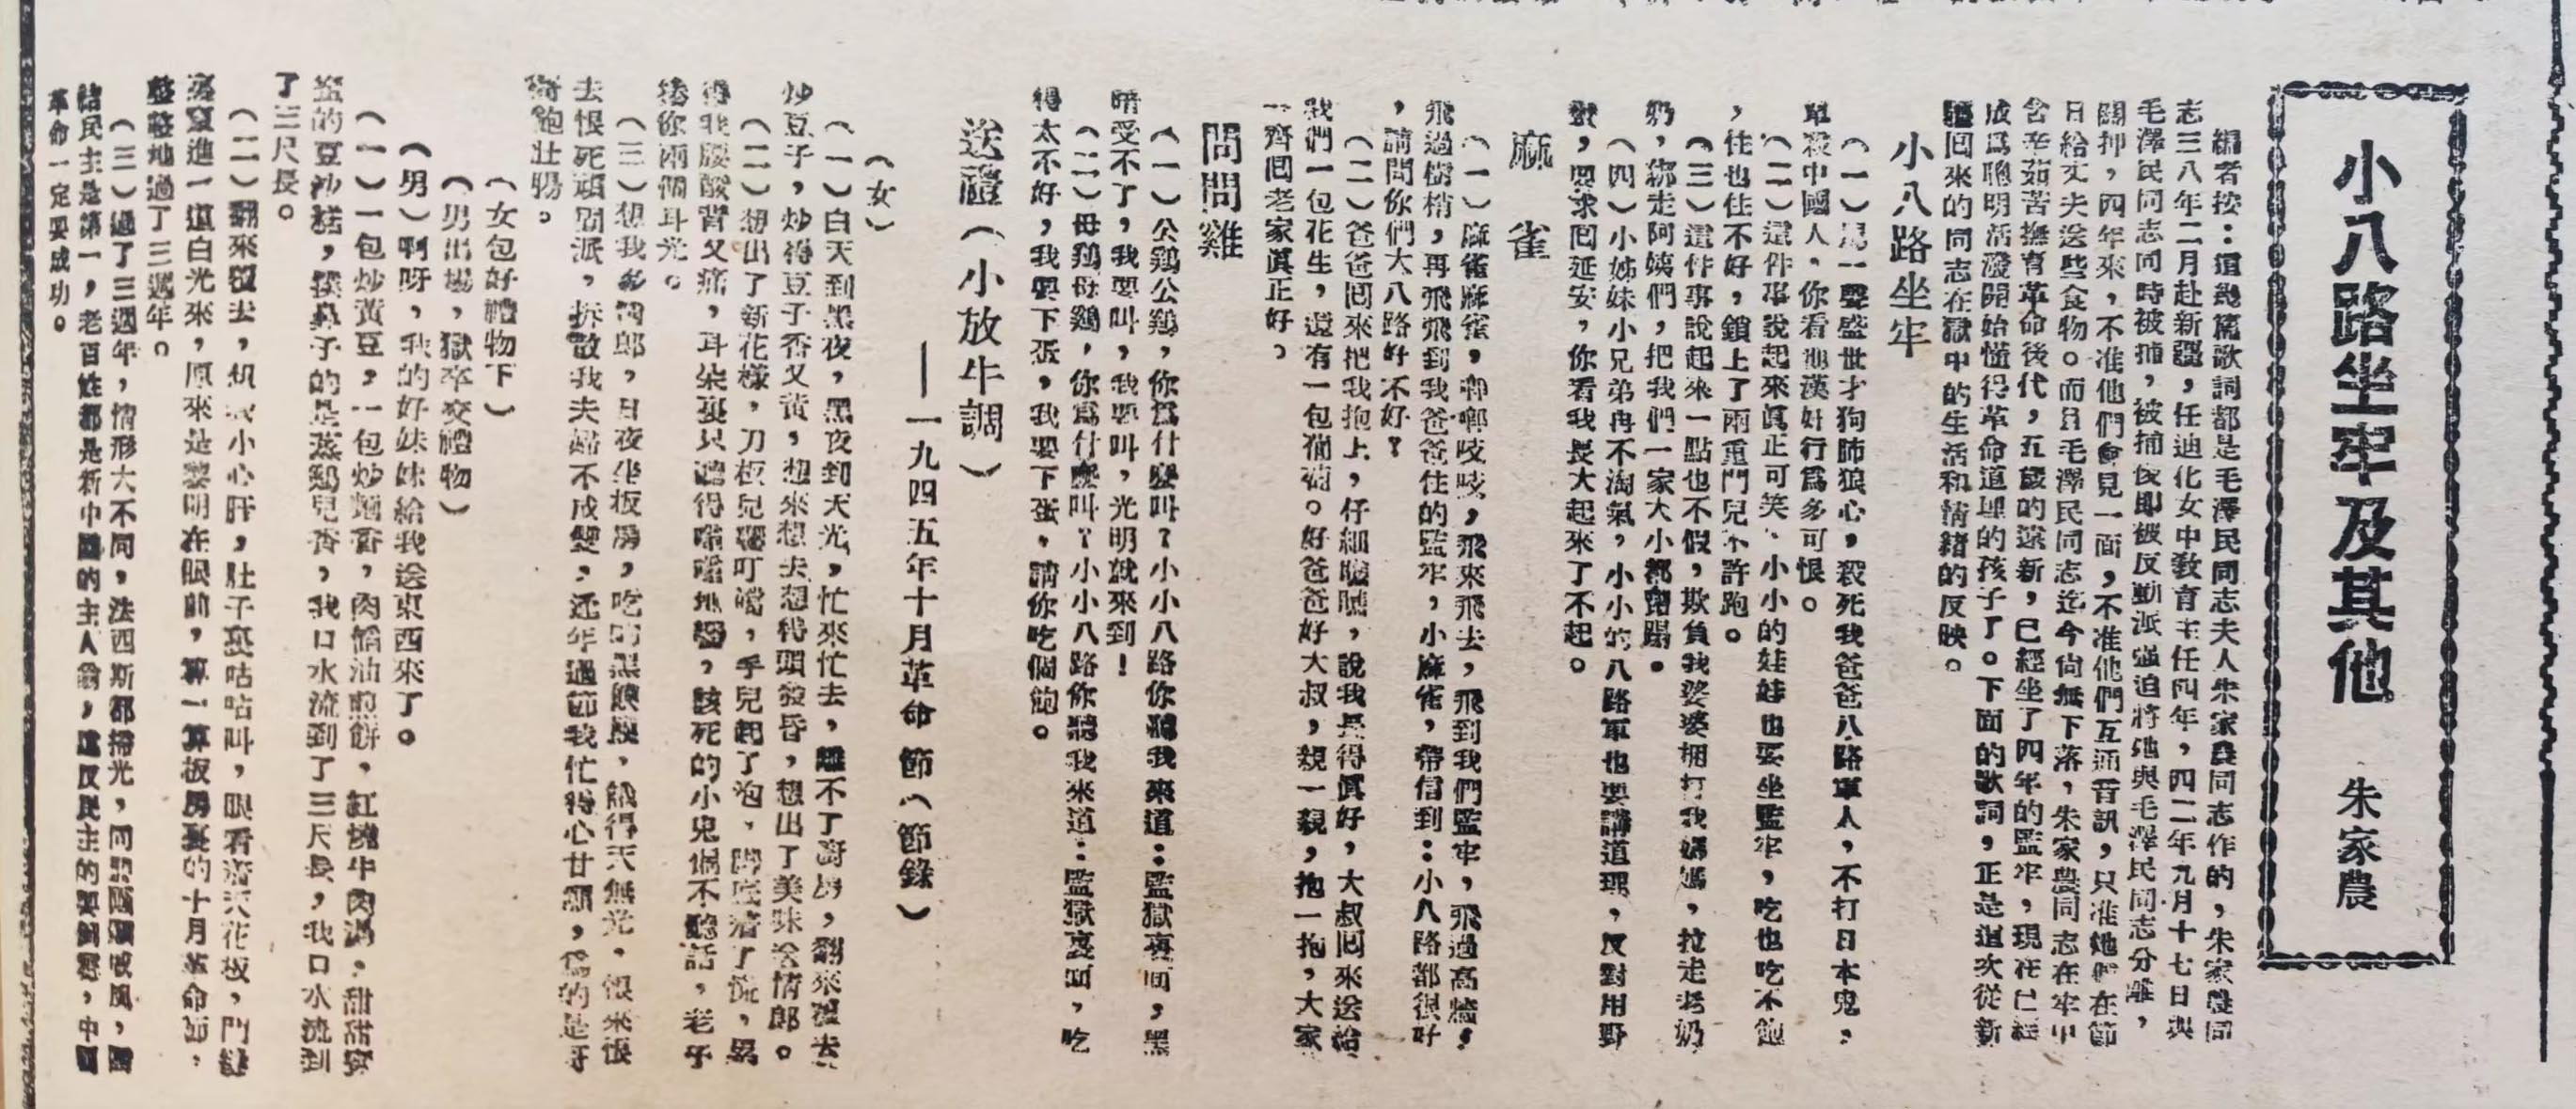 小八路坐牢及其他　朱家農
編者按：這幾篇歌詞都是毛澤民同志夫人朱家農同志作的，朱家農同
志三八年二月赴新疆，任迪化女中教育主任四年，四二年九月十七日與
毛澤民同志同時被捕，被捕後即被反動派强迫將她與毛澤民同志分離，
關押，四年來，不准他們會見一面，不准他們互通音訊，只准她們在節
日給丈夫送些食物。而且毛澤民同志迄今尙無下落，朱家農同志在牢中
含辛茹苦撫育革命後代，五歲的遠新，已經坐了四年的監牢，現在已經
成爲聰明活潑開始懂得革命道理的孩子了。下面的歌詞，正是這次從新
疆回來的同志在獄中的生活和情緒的反映。
小八路坐牢
（一）罵一聲盛世才狗肺狼心，殺死我爸爸八路軍人，不打日本鬼，
單殺中國人，你看那漢奸行爲多可恨。
（二）這件事說起來眞正可笑、小小的娃娃也要坐監牢，吃也吃不飽
，住也住不好，鎖上了兩重門兒不許跑。
（三）這件事說起來一點也不假，欺負我婆婆捆打我媽媽，拉走老奶
奶，綁走阿姨們，把我們一家大小都踢。
（四）小姊妹小兄弟再不淘氣，小小的八路軍也要講道理，反對用野
蠻，要求回延安，你看我長大起來了不起。
麻雀
（一）麻雀麻雀，唧唧吱吱，飛來飛去，飛到我們監牢，飛過高牆，
飛過樹梢，再飛飛到我爸爸住的監牢，小麻雀，帶信到：小八路都很好
，請問你們大八路好不好？
（二）爸爸回來把我抱上，仔細瞧瞧，說我長得眞好，大叔回來送給
我們一包花生，還有一包葡萄。好爸爸好大叔，親一親，抱一抱，大家
一齊回老家眞正好。
問問雞
（一）公鷄公鷄，你爲什麼叫？小小八路你聽我來道：監獄裏面，黑
暗受不了，我要叫，我要叫，光明就來到！
（二）母鷄母鷄，你爲什麼叫？小小八路你聽我來道：監獄裏面，吃
得太不好，我要下蛋，我要下蛋，請你吃個飽。
送禮（小放牛調）
——一九四五年十月革命節（節錄）
（女）
（一）白天到黑夜，黑夜到天光，忙來忙去，離不了廚房，翻來復去
炒豆子，炒得豆子香又黃，想來想去想得頭發昏，想出了美味送情郎。
（二）想出了新花樣，刀板兒響叮噹，手兒起了泡，脚底着了慌，累
得我腰酸背又痛，耳朵裏只聽得嗡嗡地響，該死的小鬼偏不聽話，老子
捲你兩個耳光。
（三）想我多情郎，日夜坐板房，吃的黑饃饃，餓得天無光，恨來恨
去恨死頑固派，拆散我夫婦不成雙，逐年過節我忙得心甘願，爲的是哥
哥飽壯腸。
（女包好禮物下）
（男出場，獄卒交禮物）
（男）啊呀，我的好妹妹給我送東西來了。
（一）一包炒黃豆，一包炒麵香，肉餡油煎餅，紅燒牛肉湯，甜甜蜜
蜜的豆沙糕，撲鼻子的是蒸鷄兒香，我口水流到了三尺長，我口水流到
了三尺長。
（二）翻來覆去，想我小心肝，肚子裏咕咕叫，眼看着天花板，門縫
窩裏進一道白光來，原來是黎明在眼前，算一算板房裏的十月革命節，
整整地過了三週年。
（三）過了三週年，情形大不同，法西斯都掃光，同盟國破風，團
結民主是第一，老百姓都是新中國的主人翁，反民主的要倒，中國
革命一定要成功。